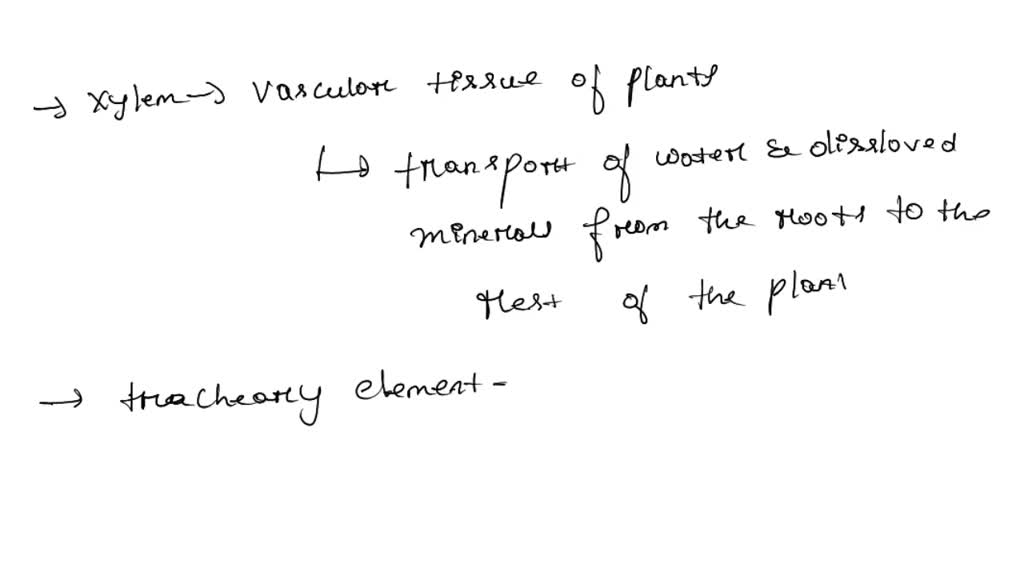 → xylem → vascular tissue of plants
↳ transport of water & dissloved
minerals from the roots to the
rest of the plant
→ tracheary element -